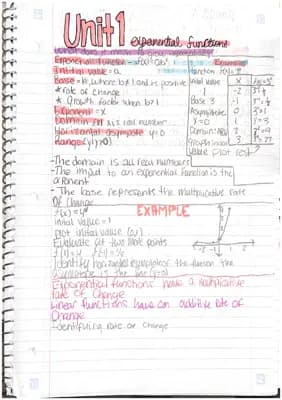 Unit 1 exponential functions
Exponential function = f(x)=ab^x
Initial value = a
Base = b, where b≠1 and is positive
* rate of change
* Growth factor when b>1
Exponent = x
Domain = All real numbers
Horizontal asymptote y=0
Range (y|y>0)
Example
function f(x)=3^x
Initial value
1
Base 3
Asymptote
y=0
Domain: ARN
x
-2
-1
0
1
2
3
-The domain is all real numbers
-The input to an exponential function is the
exponent
-The base represents the multiplicative rate
of change
EXAMPLE
f(x)=4^x
Initial value=1
plot initial value (0,1)
Evaluate at two more points
f(1)=4 f(-1)=¼
Identify horizontal asymptote of the function. The
asymptote is the line (y=0)
Exponential functions have a multiplicative
rate of change
Linear functions have an additive rate of
Change
-Identifying rate of change
-2 -1 1 2